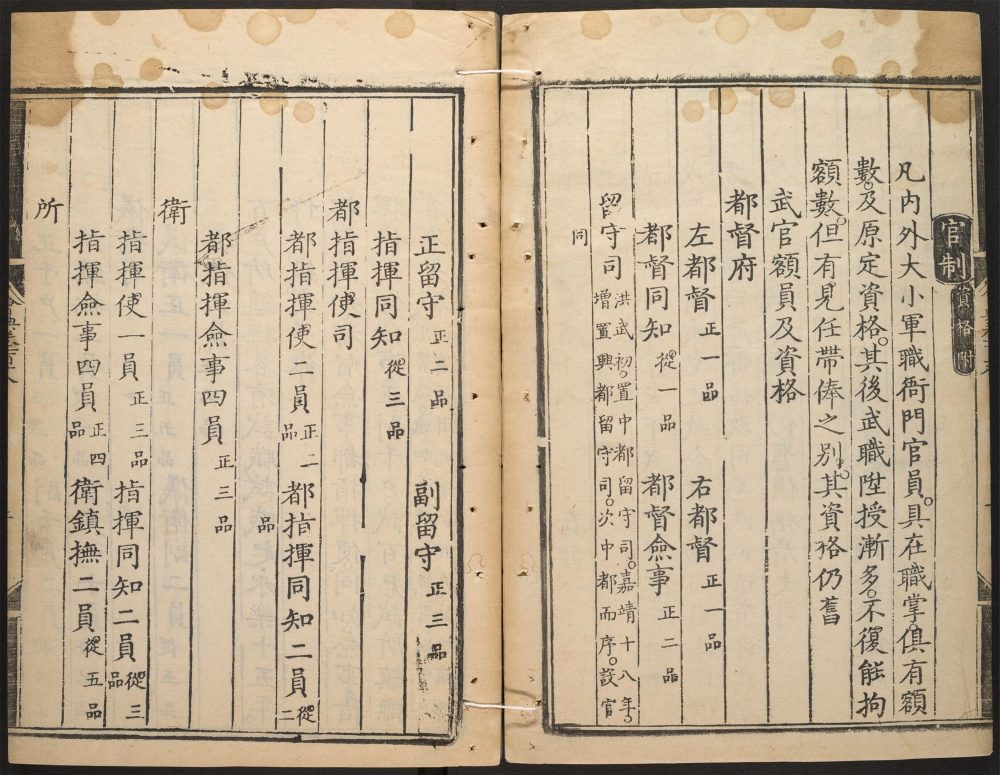 官制資格附
凡内外大小軍職衙門官員。具在職掌。俱有額
數。及原定資格。其後武職陞授漸多。不復能拘
額數。但有見任帶俸之別。其資格仍舊
武官額員及資格
都督府
左都督正一品 右都督正一品
都督同知從一品 都督僉事正二品
留守司洪武初。置中都留守司。嘉靖十八年。
增置興都留守司。次中都而序。設官
同
正留守正二品 副留守正三品
指揮同知從三品
都指揮使司
都指揮使二員正二品 都指揮同知二員從二品
都指揮僉事四員正三品
衛
指揮使一員正三品 指揮同知二員從三品
指揮僉事四員正四品 衛鎮撫二員從五品
所